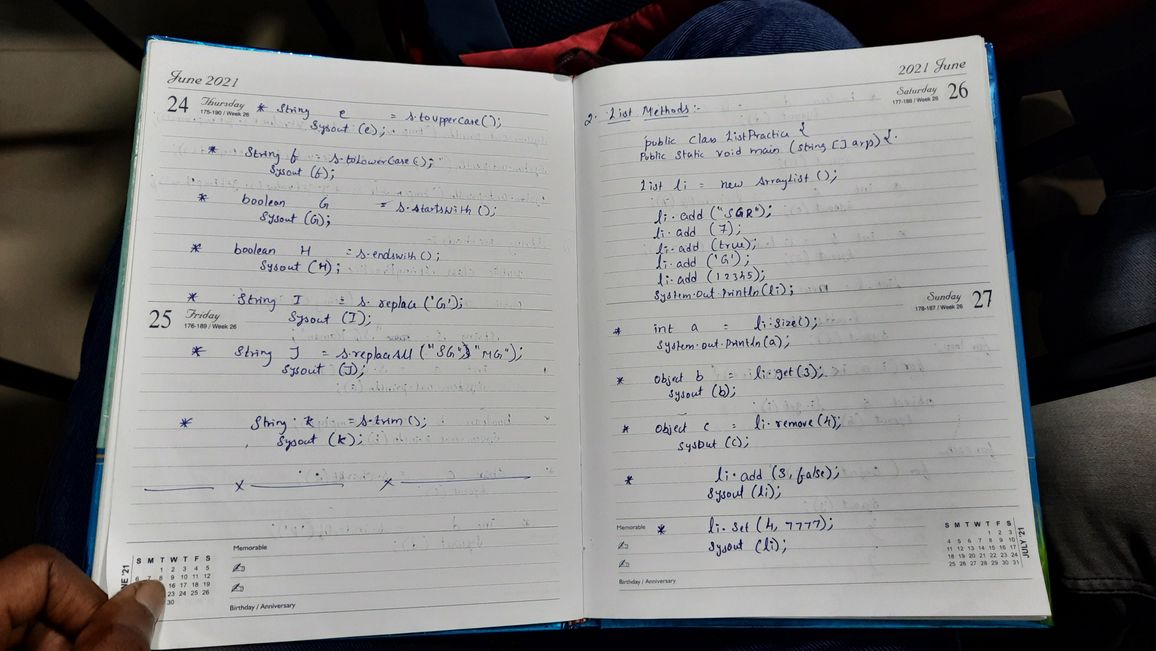 June 2021
24 Thursday
175-190 / Week 26
* String e = s.toupperCase();
Sysout (e);
* String f = s.toLowerCase();
Sysout (f);
* boolean G = s.startswith ();
Sysout (G);
* boolean H = s.endswith ();
Sysout (H);
* String I = s.replace ('G');
25 Friday
176-189 / Week 26
Sysout (I);
* String J = s.replaceAll ("SG", "MG");
Sysout (J);
* String k = s.trim ();
Sysout (k);
x x
Memorable
Birthday / Anniversary
NE '21
S M T W T F S
1 2 3 4 5
6 7 8 9 10 11 12
16 17 18 19
23 24 25 26
30
2021 June
Saturday 26
177-188 / Week 26
2. List Methods:-
public class ListPractice {
Public static void main (string [] args) {
List li = new ArrayList ();
li.add ("SGR");
li.add (7);
li.add (true);
li.add ('G');
li.add (12345);
System.out.println(li);
Sunday 27
178-187 / Week 26
* int a = li.size();
System.out.println(a);
* Object b = li.get(3);
Sysout (b);
* Object c = li.remove (4);
Sysout (c);
* li.add (3, false);
Sysout (li);
* li.set (4, 7777);
Sysout (li);
Memorable
Birthday / Anniversary
JULY '21
S M T W T F S
1 2 3
4 5 6 7 8 9 10
11 12 13 14 15 16 17
18 19 20 21 22 23 24
25 26 27 28 29 30 31